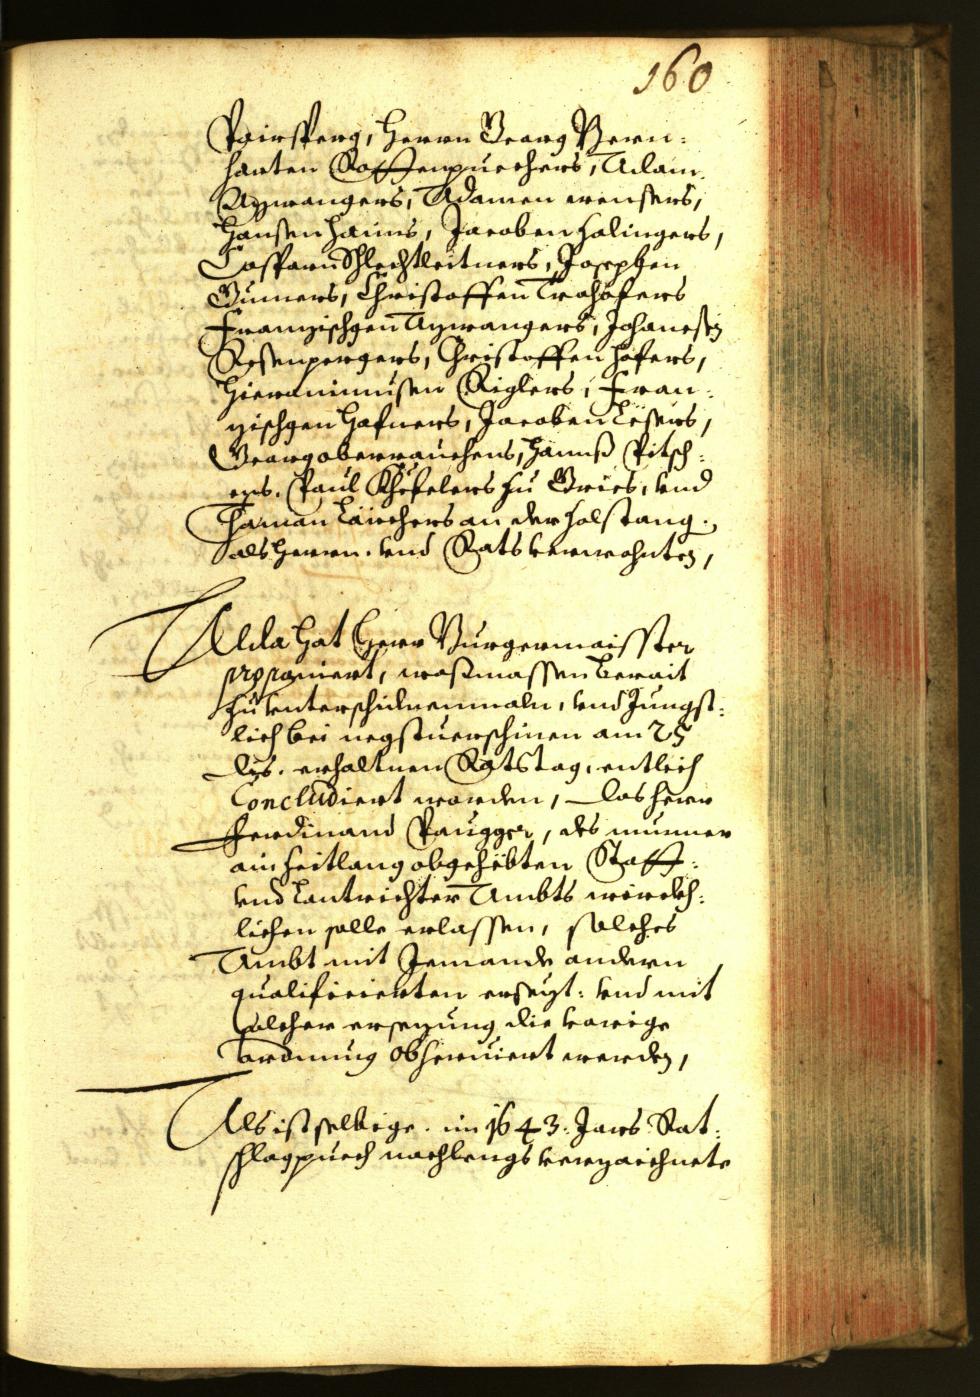 160
Pairsperg, Herrn Georg Bern:
harten Roffenpuechers, Adam
Azwangers, Adamen
Hansen Haims, Jacoben Holingers,
Casparn Schlechtleitners, Josephen
Gumers, Christoffen Trohofers
Franzischgen Azwangers, Johanesen
Rosenpergers, Christoffen Hofers,
Hieronimusen Riglers, Fran:
zischgen Hafners, Jacoben
Georg oberrauchens, Hannß Pitsch:
Paul Khofelers zu Gries, vnd
Thaman Lärchers an der Holstang.,
als Herrn. vnd Rats verwohnten,
Alda hat Herr Burgermaisster
proponiert, waßmassen berait
zu vnterschidnenmaln, vnd Jungst:
lich bei negstuerschinen am 25
dis. erhaltnen Ratstag, entlich
Concludiert worden, das Herr
Ferdinand Paugger, des nunmer
ain zeitlang obgehebten Statt:
vnd Lantrichter Ambts würckh:
lichen solle erlassen, solches
Ambt mit Jemande andern
qualificierten ersezt: vnd mit
solcher ersezung die vorige
ordnung obseruiert werden,
Als ist selbige. im 1643. Jars Rat:
schlagpuech nachlengs verzaichnete